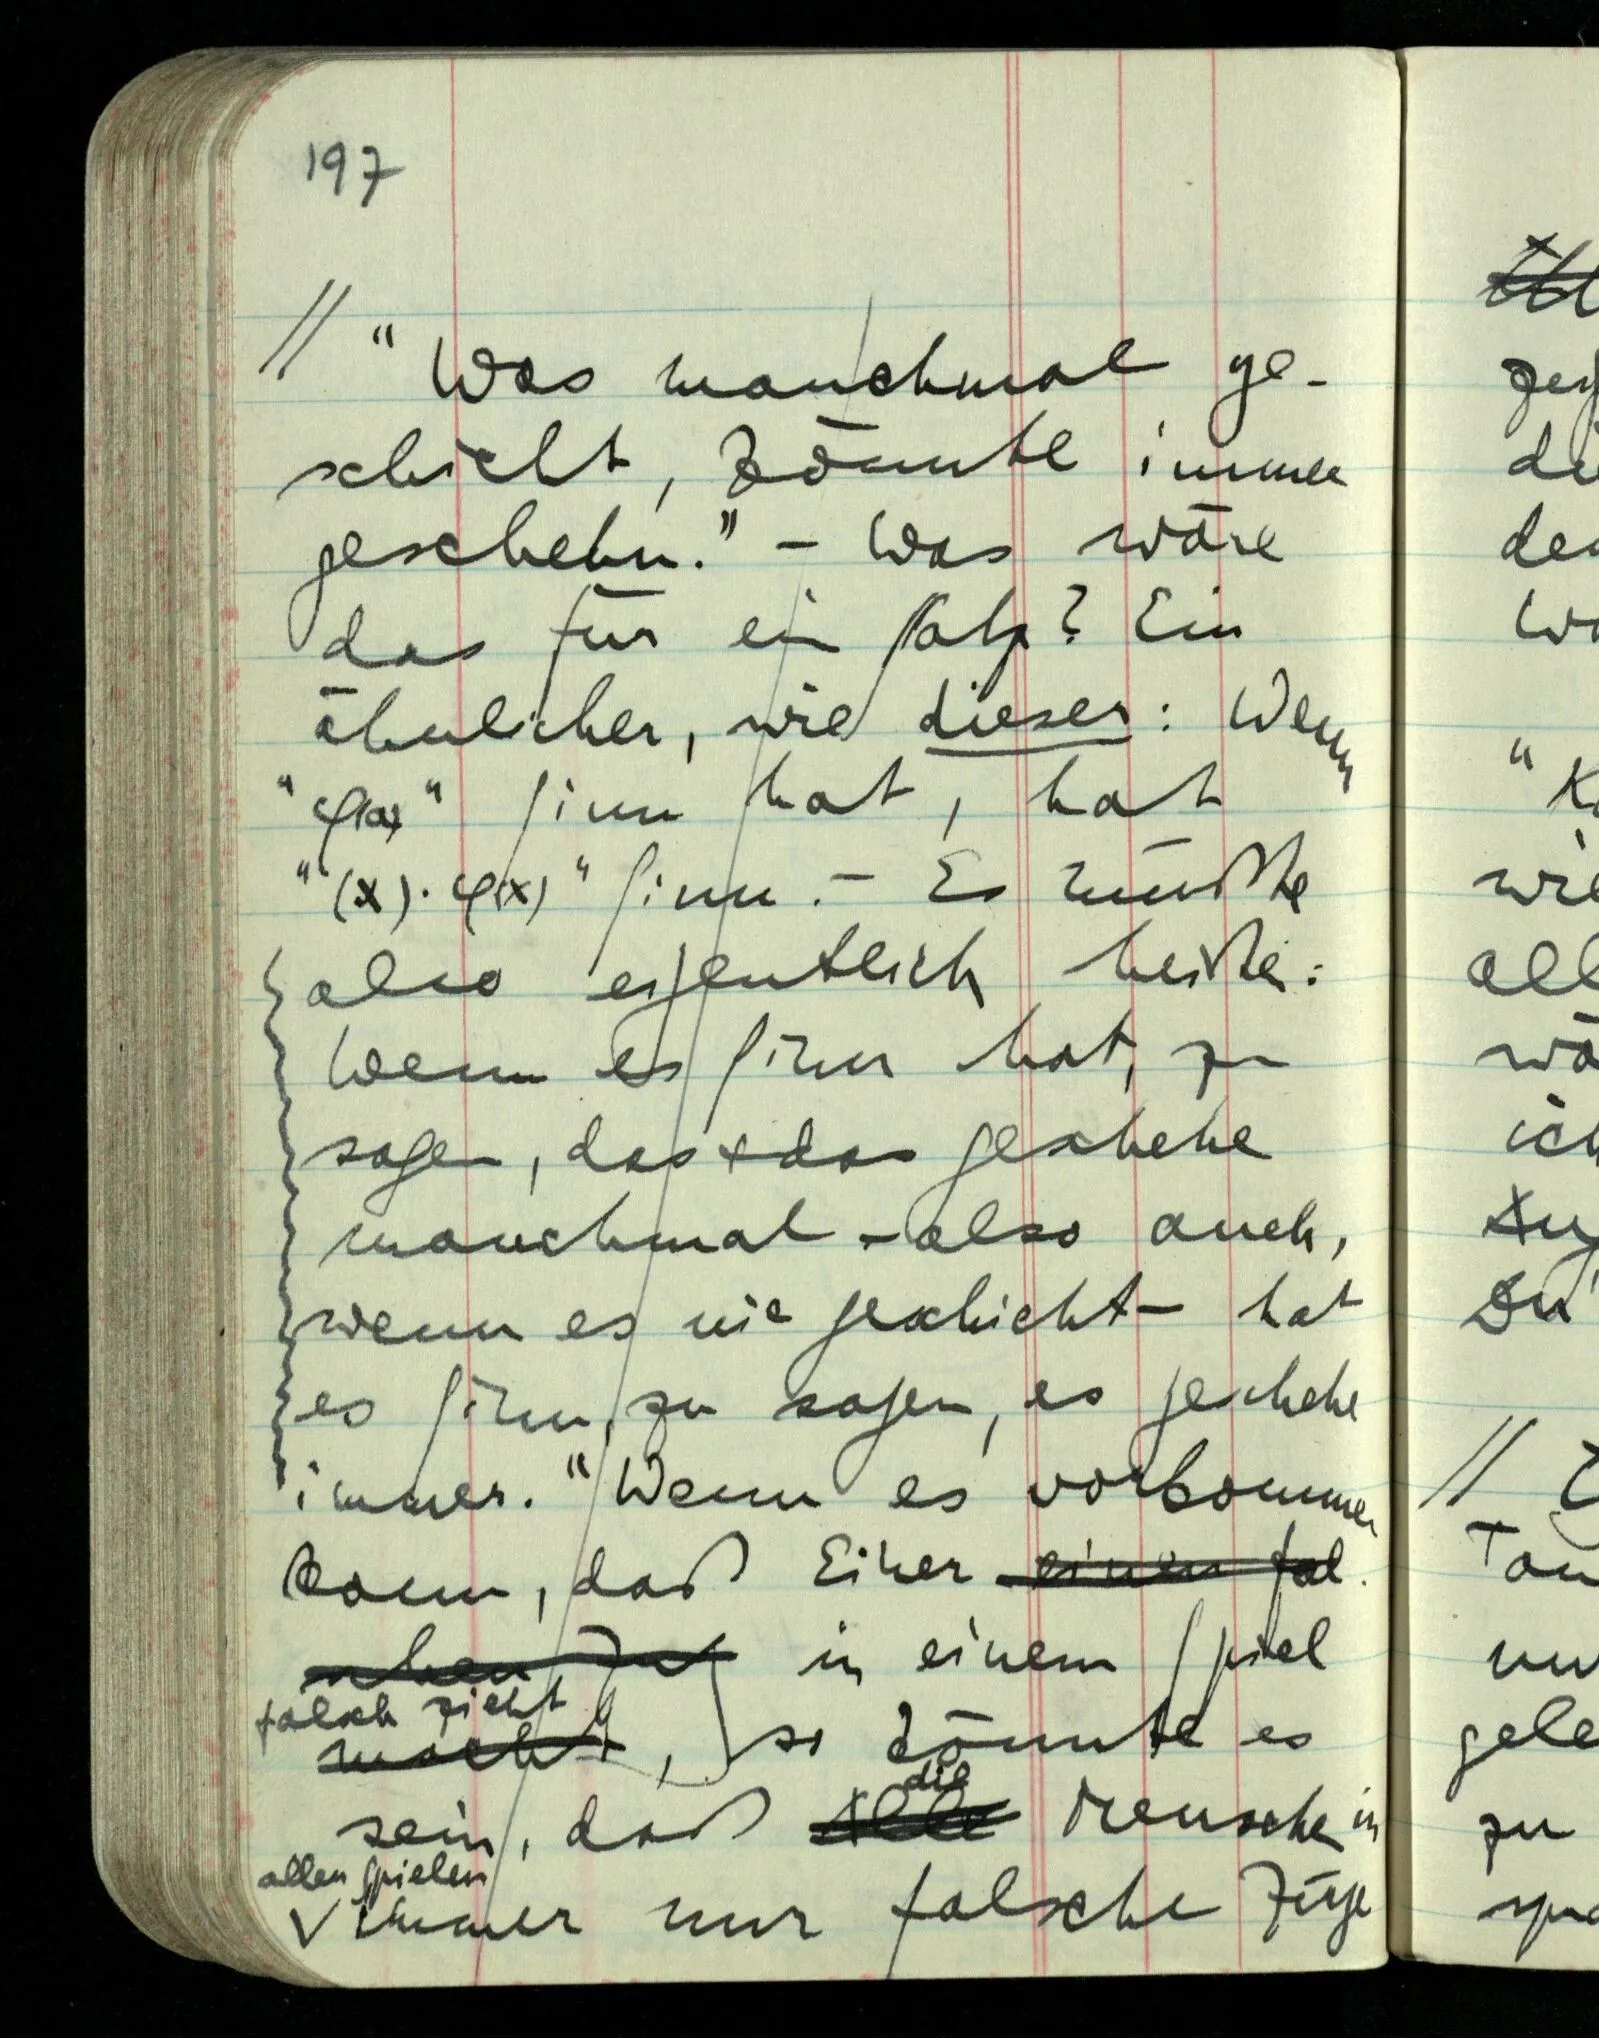 197
// "Was manchmal ge-
schieht, könnte immer
geschehn." – Was wäre
das für ein Satz? Ein
ähnlicher, wie dieser: Wenn
"φ(a)" Sinn hat, hat
"(x).φ(x)" Sinn. – Es müßte
also eigentlich heißen:
Wenn es Sinn hat, zu
sagen, das & das geschehe
manchmal – also auch,
wenn es nie geschieht – hat
es Sinn, zu sagen, es geschehe
immer. "Wenn es vorkommen
kann, daß Einer einen fal-
schen Zug in einem Spiel
falsch zieht
macht, so könnte es
die
sein, daß alle Menschen in
allen Spielen
immer nur falsche Züge
//
"